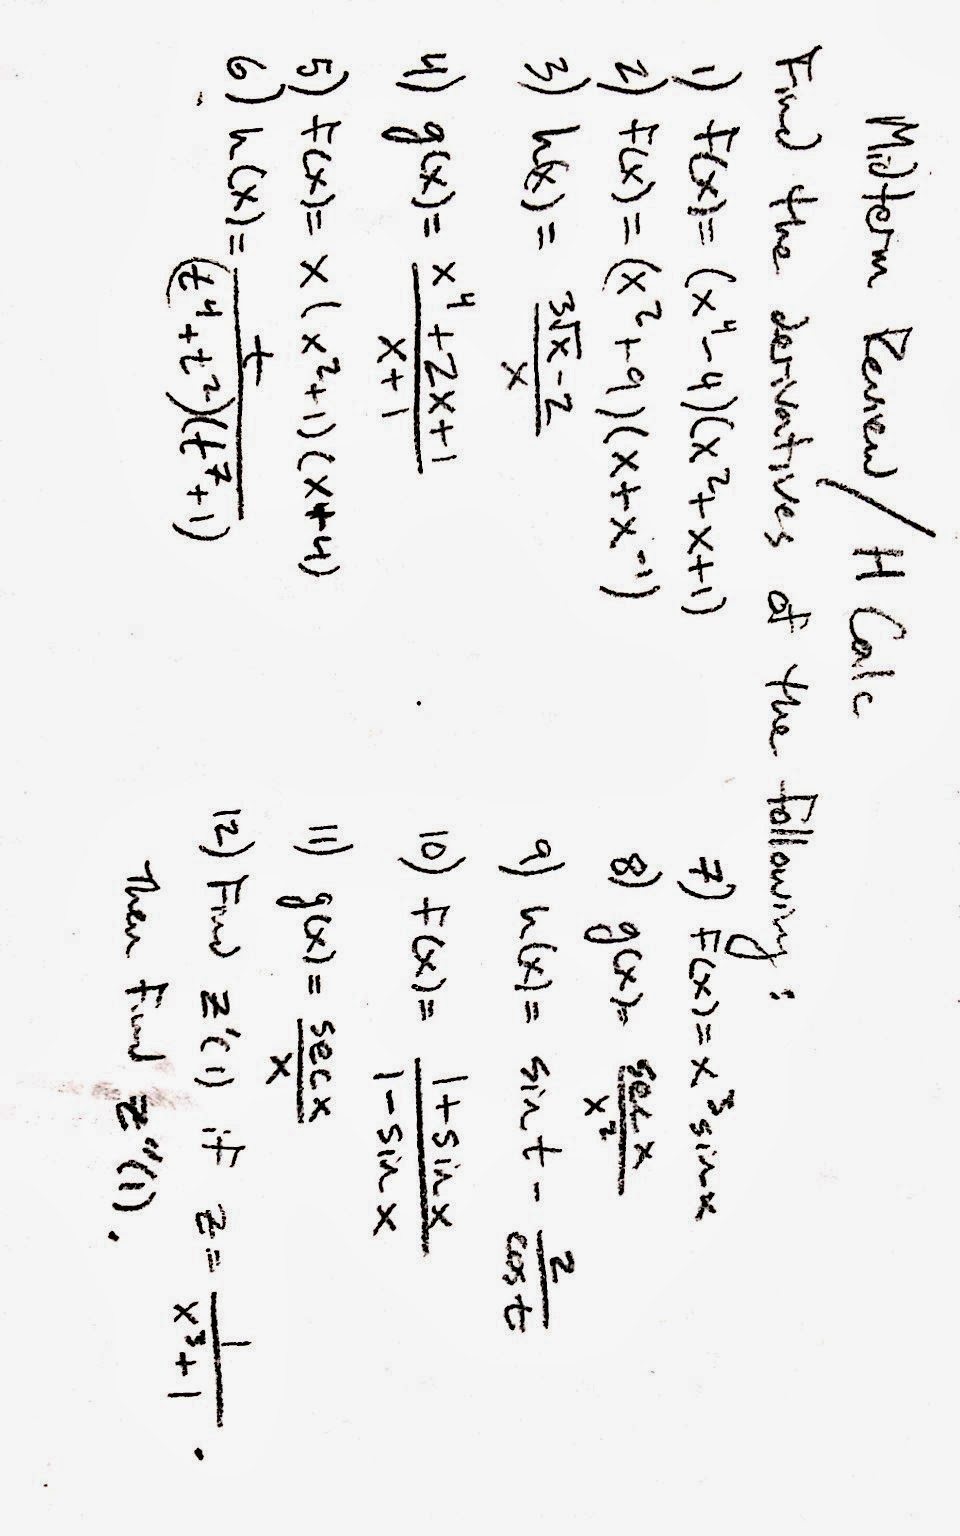 Midterm Review / H Calc
Find the derivatives of the following:
1) F(x) = (x⁴-4)(x²+x+1)
2) F(x) = (x²+9)(x+x⁻¹)
3) h(x) = 3√x-2 / x
4) g(x) = x⁴+2x+1 / x+1
5) F(x) = x(x²+1)(x+4)
6) h(x) = t / (t⁴+t²)(t⁷+1)
7) F(x) = x³sinx
8) g(x) = secx / x²
9) h(x) = sint - 2 / cost
10) F(x) = 1+sinx / 1-sinx
11) g(x) = secx / x
12) Find z'(1) if z = 1 / x³+1 .
Then find z''(1).